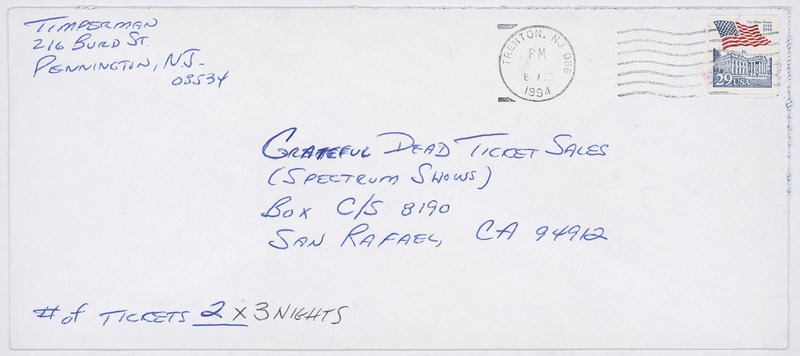 TIMPERMAN
216 BURD ST.
PENNINGTON, NJ-
08534
TRENTON, NJ 086
PM
8
1994
The White House
29 USA
GRATEFUL DEAD TICKET SALES
(SPECTRUM SHOWS)
BOX C/S 8190
SAN RAFAEL, CA 94912
# of TICKETS 2 x 3 NIGHTS